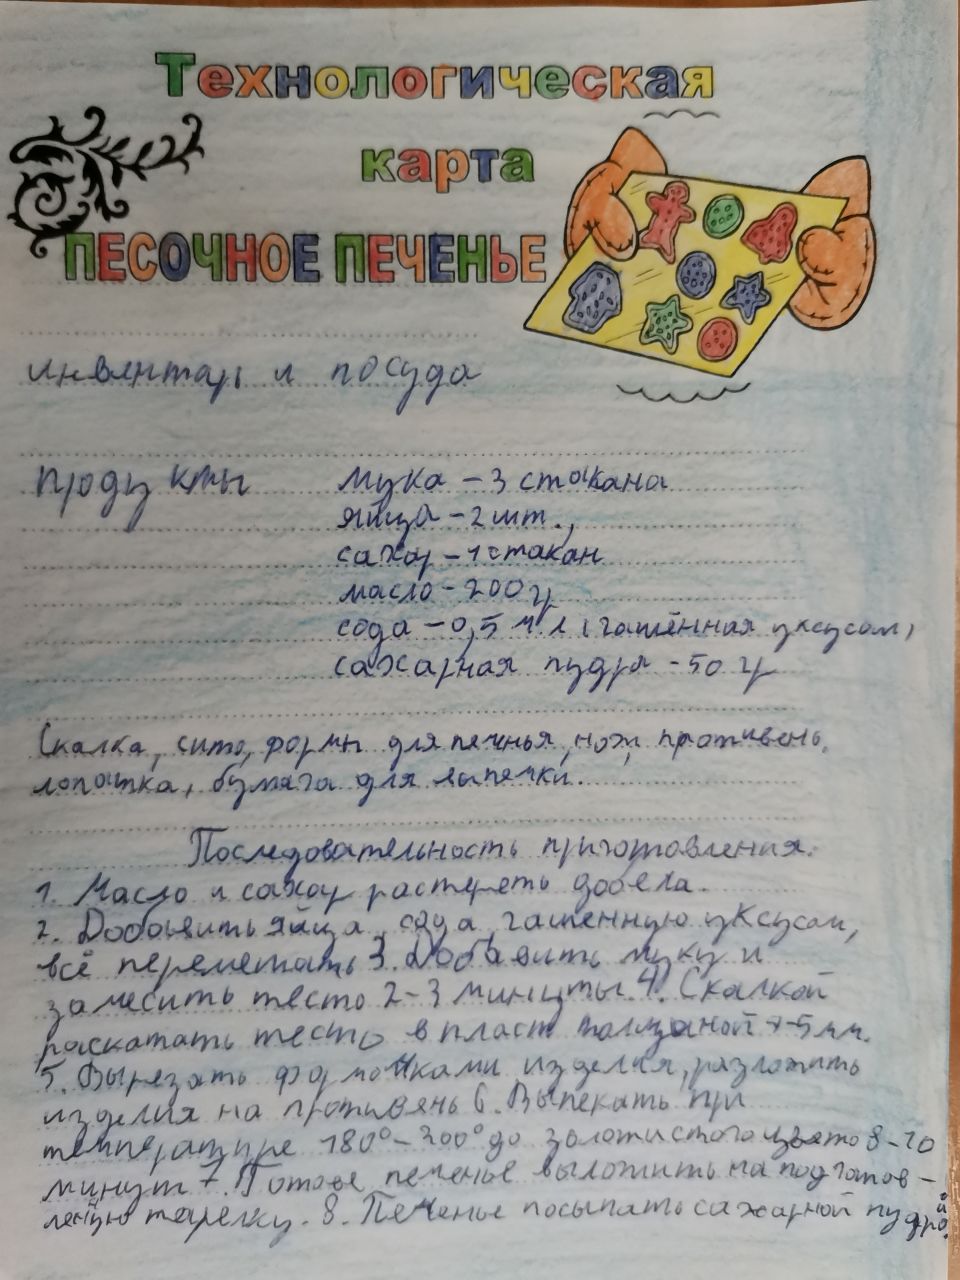 Технологическая
карта
ПЕСОЧНОЕ ПЕЧЕНЬЕ
инвентарь и посуда
продукты мука – 3 стакана
яйца – 2 шт.,
сахар – 1 стакан
масло – 200 гр
сода – 0,5 ч.л (гашённая уксусом)
сахарная пудра – 50 гр
Скалка, сито, формы для печенья, нож, противень,
лопатка, бумага для выпечки.
Последовательность приготовления.
1. Масло и сахар растереть добела.
2. Добавить яйца, сода, гашенную уксусом,
всё перемешать 3. Добавить муку и
замесить тесто 2-3 минуты. 4. Скалкой
раскатать тесто в пласт толщиной 4-5 мм.
5. Вырезать формочками изделия, разложить
изделия на противень 6. Выпекать при
температуре 180°-200° до золотистого цвета 8-10
минут 7. Готовое печенье выложить на подготов-
ленную тарелку. 8. Печенье посыпать сахарной пудрой.